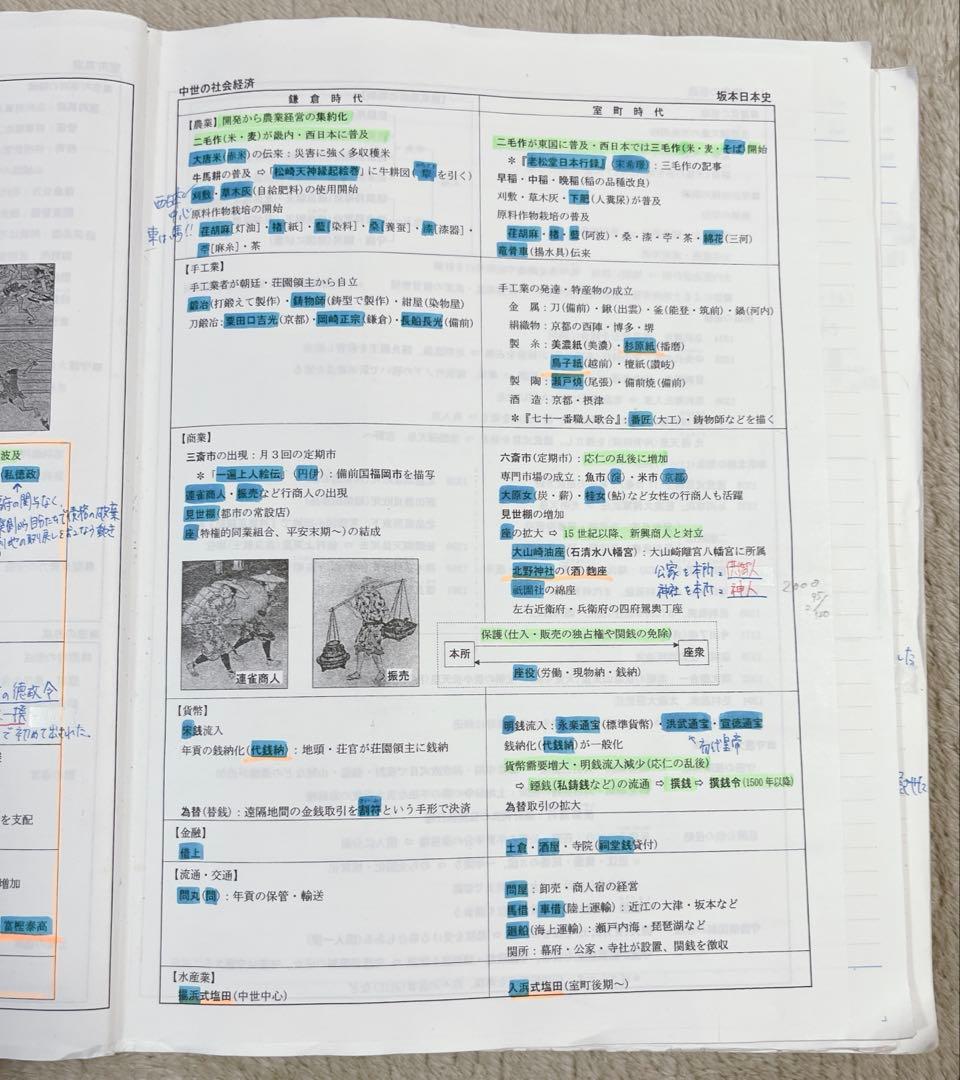 中世の社会経済
坂本日本史
鎌倉時代
【農業】開発から農業経営の集約化
二毛作(米・麦)が畿内・西日本に普及
大唐米(赤米)の伝来：災害に強く多収穫米
牛馬耕の普及 ⇨「松崎天神縁起絵巻」に牛耕図(犂を引く)
刈敷・草木灰(自給肥料)の使用開始
原料作物栽培の開始
荏胡麻[灯油]・楮[紙]・藍[染料]・桑[養蚕]・漆[漆器]・
苧[麻糸]・茶
中心
東は馬!!
【手工業】
手工業者が朝廷・荘園領主から自立
鍛冶(打鍛えて製作)・鋳物師(鋳型で製作)・紺屋(染物屋)
刀鍛冶：粟田口吉光(京都)・岡崎正宗(鎌倉)・長船長光(備前)
【商業】
三斎市の出現：月３回の定期市
＊「一遍上人絵伝」(円伊)：備前国福岡市を描写
連雀商人・振売など行商人の出現
見世棚(都市の常設店)
座(特権的同業組合、平安末期～)の結成
連雀商人
振売
【貨幣】
宋銭流入
年貢の銭納化(代銭納)：地頭・荘官が荘園領主に銭納
為替(替銭)：遠隔地間の金銭取引を割符という手形で決済
【金融】
借上
【流通・交通】
問丸(問)：年貢の保管・輸送
【水産業】
揚浜式塩田(中世中心)
室町時代
二毛作が東国に普及・西日本では三毛作(米・麦・そば)開始
＊『老松堂日本行録』(宋希璟)：三毛作の記事
早稲・中稲・晩稲(稲の品種改良)
刈敷・草木灰・下肥(人糞尿)が普及
原料作物栽培の普及
荏胡麻・楮・藍(阿波)・桑・漆・苧・茶・綿花(三河)
竜骨車(揚水具)伝来
手工業の発達・特産物の成立
金　属：刀(備前)・鍬(出雲)・釜(能登・筑前)・鍋(河内)
絹織物：京都の西陣・博多・堺
製　糸：美濃紙(美濃)・杉原紙(播磨)
鳥子紙(越前)・檀紙(讃岐)
製　陶：瀬戸焼(尾張)・備前焼(備前)
酒　造：京都・摂津
＊『七十一番職人歌合』：番匠(大工)・鋳物師などを描く
六斎市(定期市)：応仁の乱後に増加
専門市場の成立：魚市(淀)・米市(京都)
大原女(炭・薪)・桂女(鮎)など女性の行商人も活躍
見世棚の増加
座の拡大 ⇨ 15世紀以降、新興商人と対立
大山崎油座(石清水八幡宮)：大山崎離宮八幡宮に所属
北野神社の(酒)麴座
祇園社の綿座
左右近衛府・兵衛府の四府駕輿丁座
公家を本所：供御人
神社を本所：神人
保護(仕入・販売の独占権や関銭の免除)
本所
座衆
座役(労働・現物納・銭納)
明銭流入：永楽通宝(標準貨幣)・洪武通宝・宣徳通宝
銭納化(代銭納)が一般化
貨幣需要増大・明銭流入減少(応仁の乱後)
⇨ 鐚銭(私鋳銭など)の流通 ⇨ 撰銭 ⇨ 撰銭令(1500年以降)
為替取引の拡大
土倉・酒屋・寺院(祠堂銭貸付)
問屋：卸売・商人宿の経営
馬借・車借(陸上運輸)：近江の大津・坂本など
廻船(海上運輸)：瀬戸内海・琵琶湖など
関所：幕府・公家・寺社が設置、関銭を徴収
入浜式塩田(室町後期～)
波及
(私徳政)
の徳政令
で初めて出された。
を支配
増加
富樫泰高